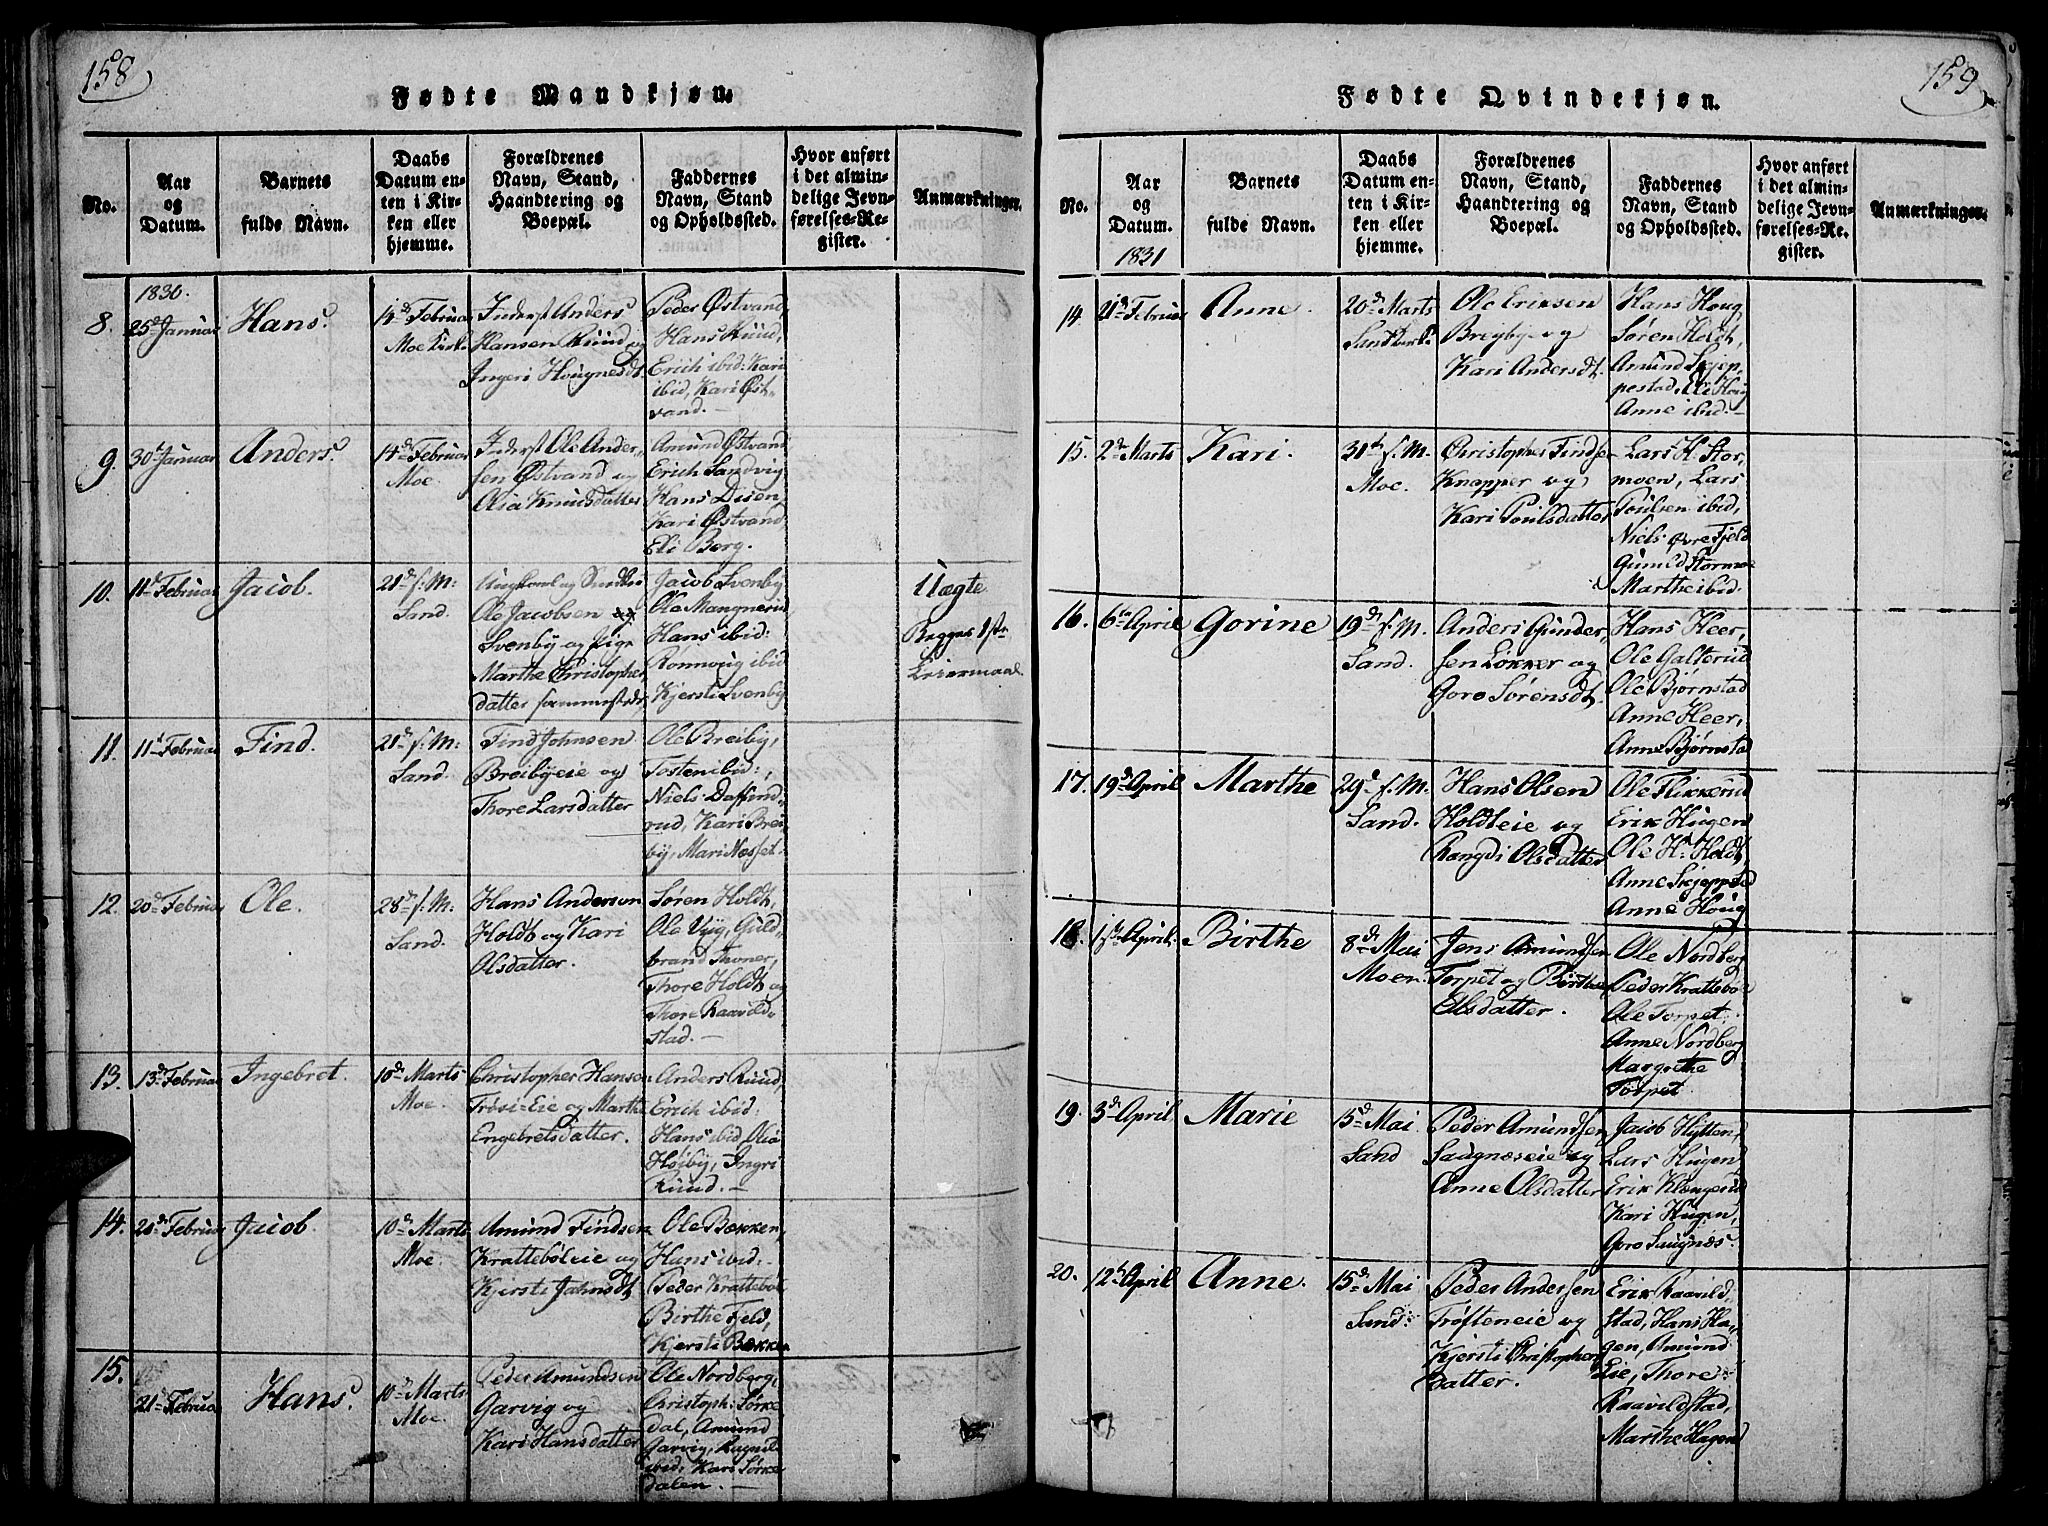 158
Fødte Mandkjøn.
No.
Aar
og
Datum.
Barnets
fulde Navn.
Daabs
Datum en-
ten i Kir-
ken eller
hjemme.
Forældrenes
Navn, Stand,
Haandtering og
Boepæl.
Faddernes
Navn, Stand
og Opholdssted.
Hvor anført
i det almin-
delige Jevn-
førelses-Re-
gister.
Anmærkninger.
8.
25d Januar
Hans.
14d Februar
Moe Kirke
Inderst Anders
Hansen Ruud og
Ingeri Hougnesdt.
Peder Østvand,
Hans Ruud,
Erich ibid: Kari
ibid, Kari Øst-
vand.
9.
30d Januar
Anders.
14d Februar
Moe.
Inderst Ole Ander-
sen Østvand og
Olia Knudsdatter
Amund Østvand
Erich Sandvig
Hans Disen
Kari Østvand,
Eli Berg.
10.
11d Februar
Jacob.
21d f: M:
Sand.
Ungkarl og
Ole Jacobsen
Svenby og Pige
Marthe Christopher
datter sammesteds,
Jacob Svenby
Ole Mangnerud
Hans ibid:
Ronnoug ibid
Kjersti Svenby
Uægte
Begges 1ste
Leiermaal.
11.
11d Februar
Find.
21d f: M:
Sand.
Find Johnsen
Breibyeie og
Thore Larsdatter
Ole Breiby,
Tosten ibid:,
Niels Daffind-
rud, Kari Brei
by, Mari Nesset.
12.
20d Februar
Ole.
28d f: M.
Sand.
Hans Andersen
Holdt og Kari
Olsdatter.
Søren Holdt,
Ole Viig, Guld-
brand Thoner,
Thore Holdt og
Thore Raavild-
stad.
13.
13d Februar
Ingebret.
10d Marts
Moe.
Christopher Hansen
Trøsi-Eie og Marthe
Engebretsdatter.
Anders Ruud,
Erich ibid:
Hans ibid, Olia
Høiby, Ingri
Ruud.
14.
20d Februar
Jacob.
10d Marts
Moe.
Amund Findsen
Kratteböleie og
Kjersti Jahnsdt
Ole Bækken,
Hans ibid:
Peder Krattebøl
Birthe Fjeld,
Kjersti Bækken
15.
21d Februar
Hans.
10d Marts
Moe.
Peder Amundsen
Garvig og
Kari Hansdatter
Ole Nordberg,
Christoph: Sørke
dal, Amund
Garvig, Ragnild
ibid, Kari Sørke
dalen.
159
Fødte Qvindekjøn.
No.
Aar
og
Datum.
1831
Barnets
fulde Navn.
Daabs
Datum en-
ten i Kir-
ken eller
hjemme.
Forældrenes
Navn, Stand,
Haandtering og
Boepæl.
Faddernes
Navn, Stand
og Opholdssted.
Hvor anført
i det almin-
delige Jevn-
førelses-Re-
gister.
Anmærkninger.
14.
21d Februar
Anne.
20d Marts
Sand Kirke
Ole Eriksen
Breyby og
Kari Andersdt.
Hans Houg
Søren Holdt,
Amund Skjep-
pestad, Ole Houg
Anne ibid.
15.
2d Marts
Kari.
31th f. M.
Moe.
Christopher Findsen
Knapper og
Kari Poulsdatter
Lars H. Stor,
moen, Lars
Poulsen ibid,
Niels øvre Fjeld
Gunild Stormoe
Marthe ibid.
16.
6te April
Gorine
19d f. M.
Sand.
Anders Gunder,
sen Løkker og
Goro Sørensdt.
Hans Heer,
Ole Galterud
Ole Bjørnstad
Anne Heer,
Anne Bjørnstad
17.
19d April
Marthe
29d f. M.
Sand.
Hans Olsen
Holdteie og
Rangdi Olsdatter
Ole Flikkerud
Erik Hugen
Ole H. Holdt,
Anne Skjeppsta
Anne Houg
18.
1ste April.
Birthe
8d Mai
Moen.
Jens Amundsen
Torpet og Birthe
Olsdatter.
Ole Nordberg
Peder Krattebøl
Ole Torpet.
Anne Nordberg
Margrethe
Torpet
19.
3d April
Marie
15d Mai
Sand
Peder Amundsen
Saugnæseie og
Anne Olsdatter
Jacob Hytten,
Lars Hugen,
Erik Klængerud
Kari Hugen,
Goro Saugnæs.
20.
12th April
Anne.
15d Mai
Sand.
Peder Andersen
Trøfteneie og
Kjersti Christophers
datter.
Erik Raavild-
stad, Hans Ha-
gen, Amund
Eie, Thore
Raavildstad,
Marthe Hagen